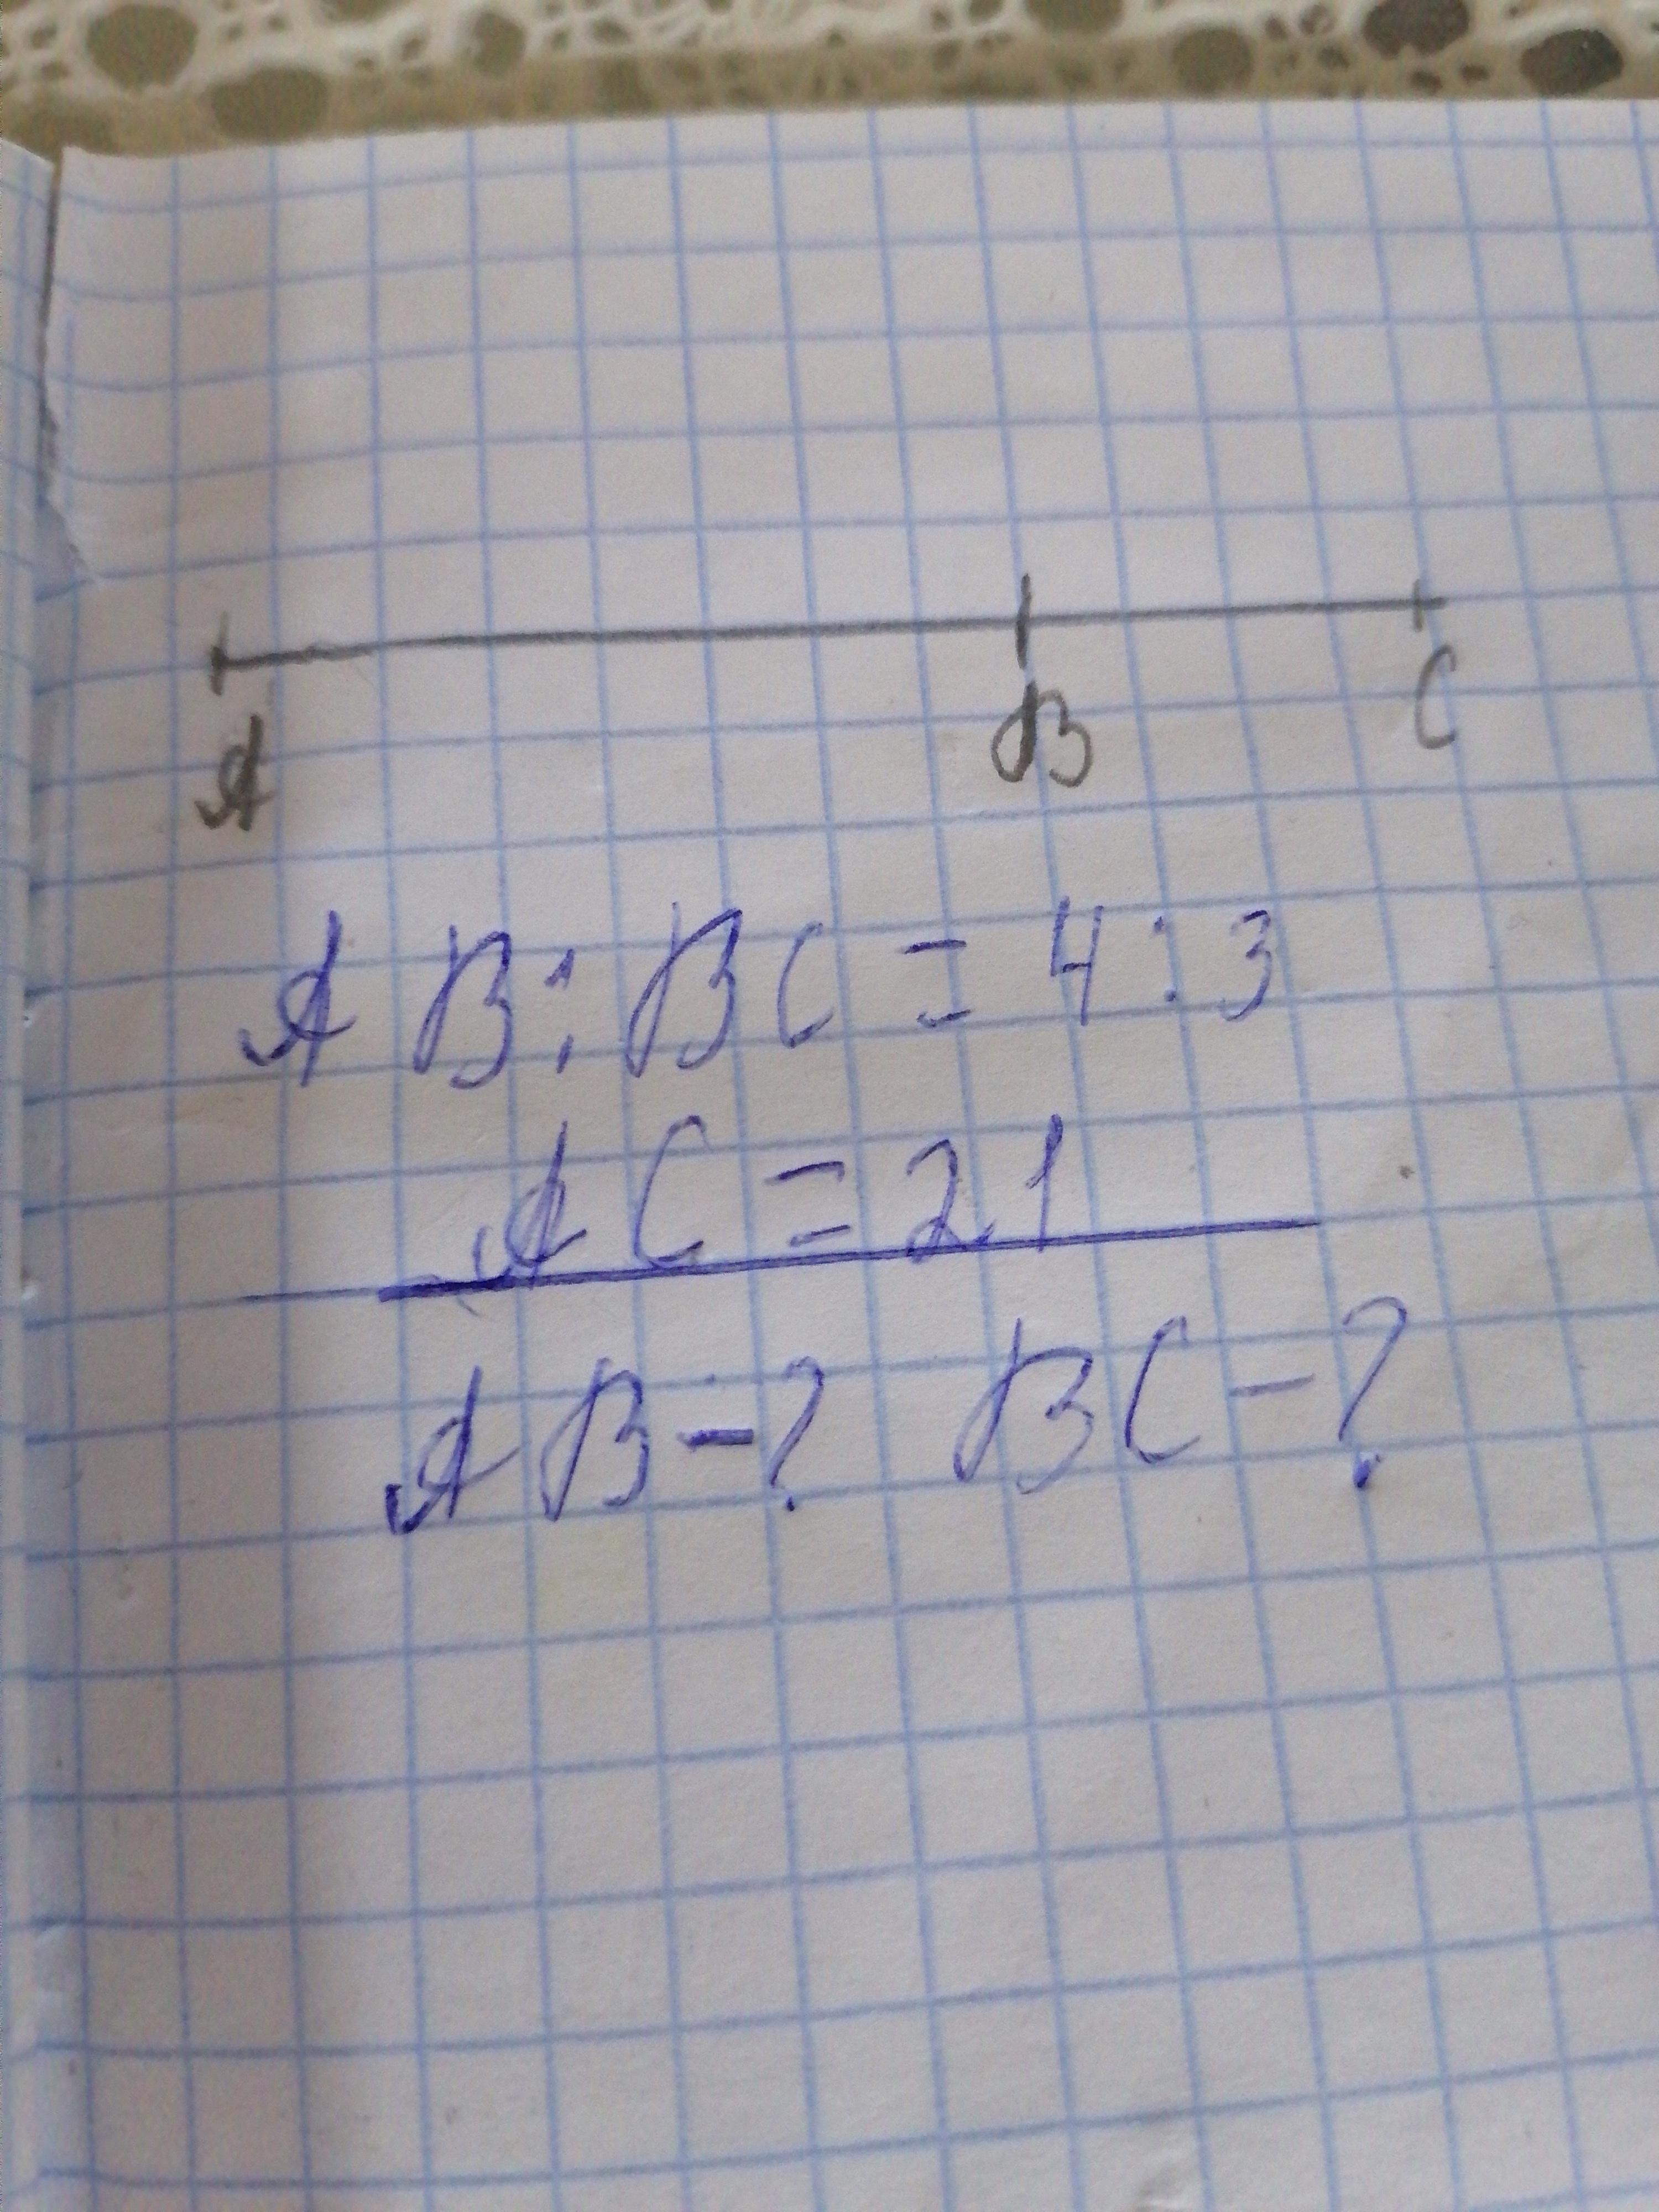 A B C
AB:BC = 4:3
AC = 21
AB-? BC-?